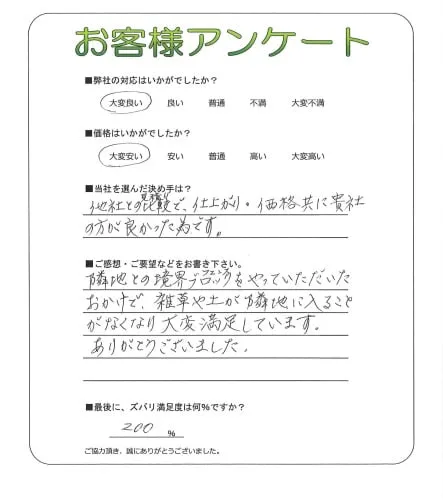 お客様アンケート
■弊社の対応はいかがでしたか？
大変良い 良い 普通 不満 大変不満
■価格はいかがでしたか？
大変安い 安い 普通 高い 大変高い
■当社を選んだ決め手は？
見積り
他社との比較で、仕上がり・価格共に貴社
の方が良かった為です。
■ご感想・ご要望などをお書き下さい。
隣地との境界ブロックをやっていただいた
おかげで、雑草や土が隣地に入ること
がなくなり大変満足しています。
ありがとうございました。
■最後に、ズバリ満足度は何％ですか？
200 %
ご協力頂き、誠にありがとうございました。